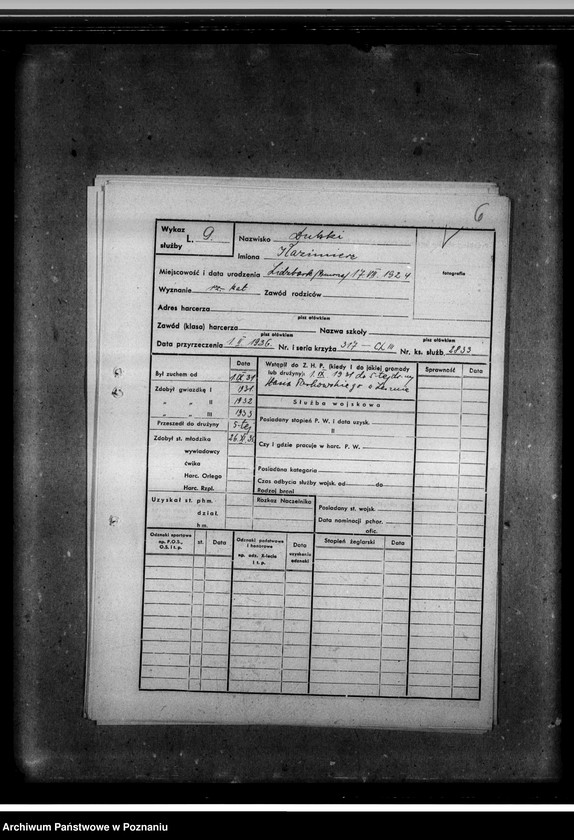 6
Wykaz L. 9.
służby
Nazwisko Dulski
Imiona Kazimierz
fotografia
Miejscowość i data urodzenia 17 VII 1924
Wyznanie rz-kat Zawód rodziców
Adres harcerza
pisz ołówkiem
Zawód (klasa) harcerza Nazwa szkoły
pisz ołówkiem pisz ołówkiem
Data przyrzeczenia 1936. Nr. i seria krzyża 317 - Nr. ks. służb. 2833
Data
Był zuchem od 1.IX 31
Zdobył gwiazdkę I 1931
" " II 1932
" " III 1933
Przeszedł do drużyny 5-tej
Zdobył st. młodzika
wywiadowcy
ćwika
Harc. Orlego
Harc. Rzpl.
Uzyskał st. phm.
dział.
hm.
Wstąpił do Z. H. P. (kiedy i do jakiej gromady
lub drużyny) 1 IX 1931 do 5-tej
Służba wojskowa
Posiadany stopień P. W. i data uzysk.
II
Czy i gdzie pracuje w harc. P. W.
Posiadana kategoria
Czas odbycia służby wojsk. od do
Rodzaj broni
Rozkaz Naczelnika
Posiadany st. wojsk.
Data nominacji pchor.
ofic.
Sprawność Data
Odznaki sportowe
np. P.O.S.,
O.S. i t. p.
st. Data
Odznaki państwowe
i honorowe
i t. p.
Data
uzyskania
odznaki
Stopień żeglarski Data
Archiwum Państwowe w Poznaniu